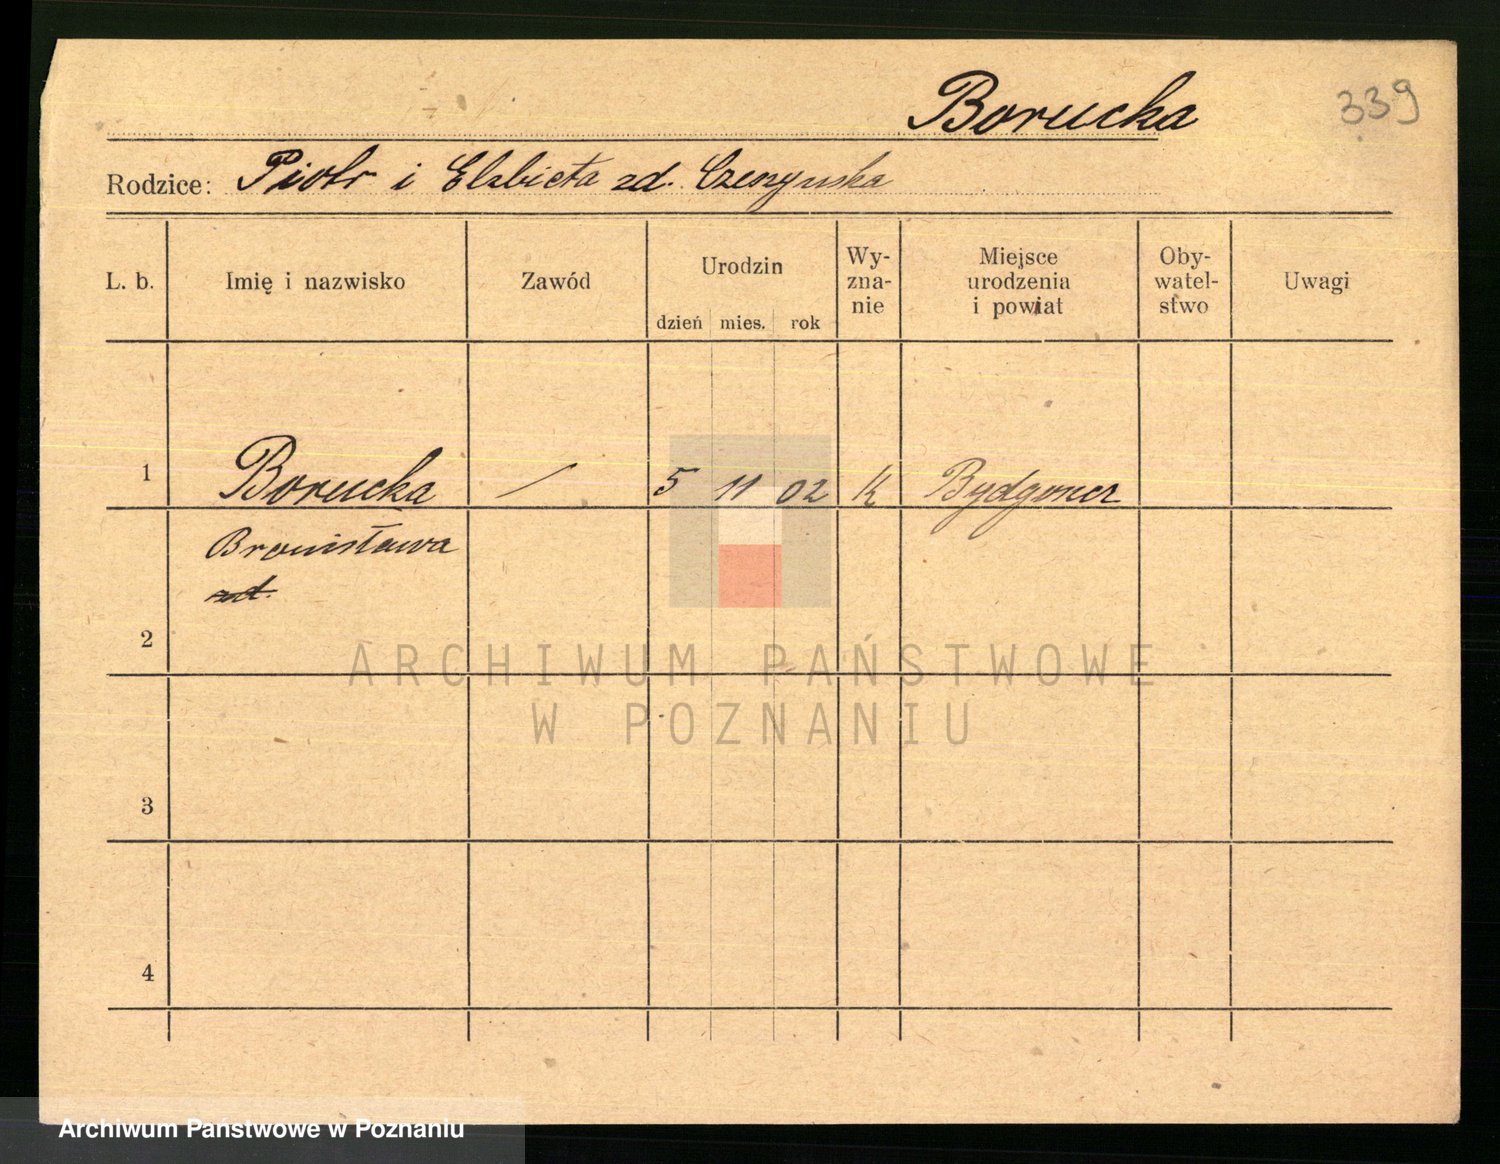 Borucka 339
Rodzice: Piotr i Elżbieta zd. Czenyńska
L. b. Imię i nazwisko Zawód Urodzin Wy-zna-nie Miejsce urodzenia i powiat Oby-watel-stwo Uwagi
dzień mies. rok
1 Borucka / 5 11 02 K Bydgoszcz
Bronisława
zd.
2
ARCHIWUM PAŃSTWOWE
W POZNANIU
3
4
Archiwum Państwowe w Poznaniu